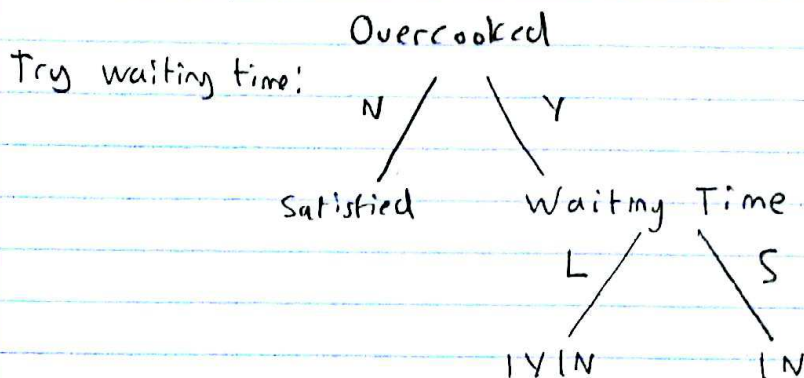 Overcooked
Try waiting time:
N Y
Satisfied Waiting Time
L S
1Y1N 1N